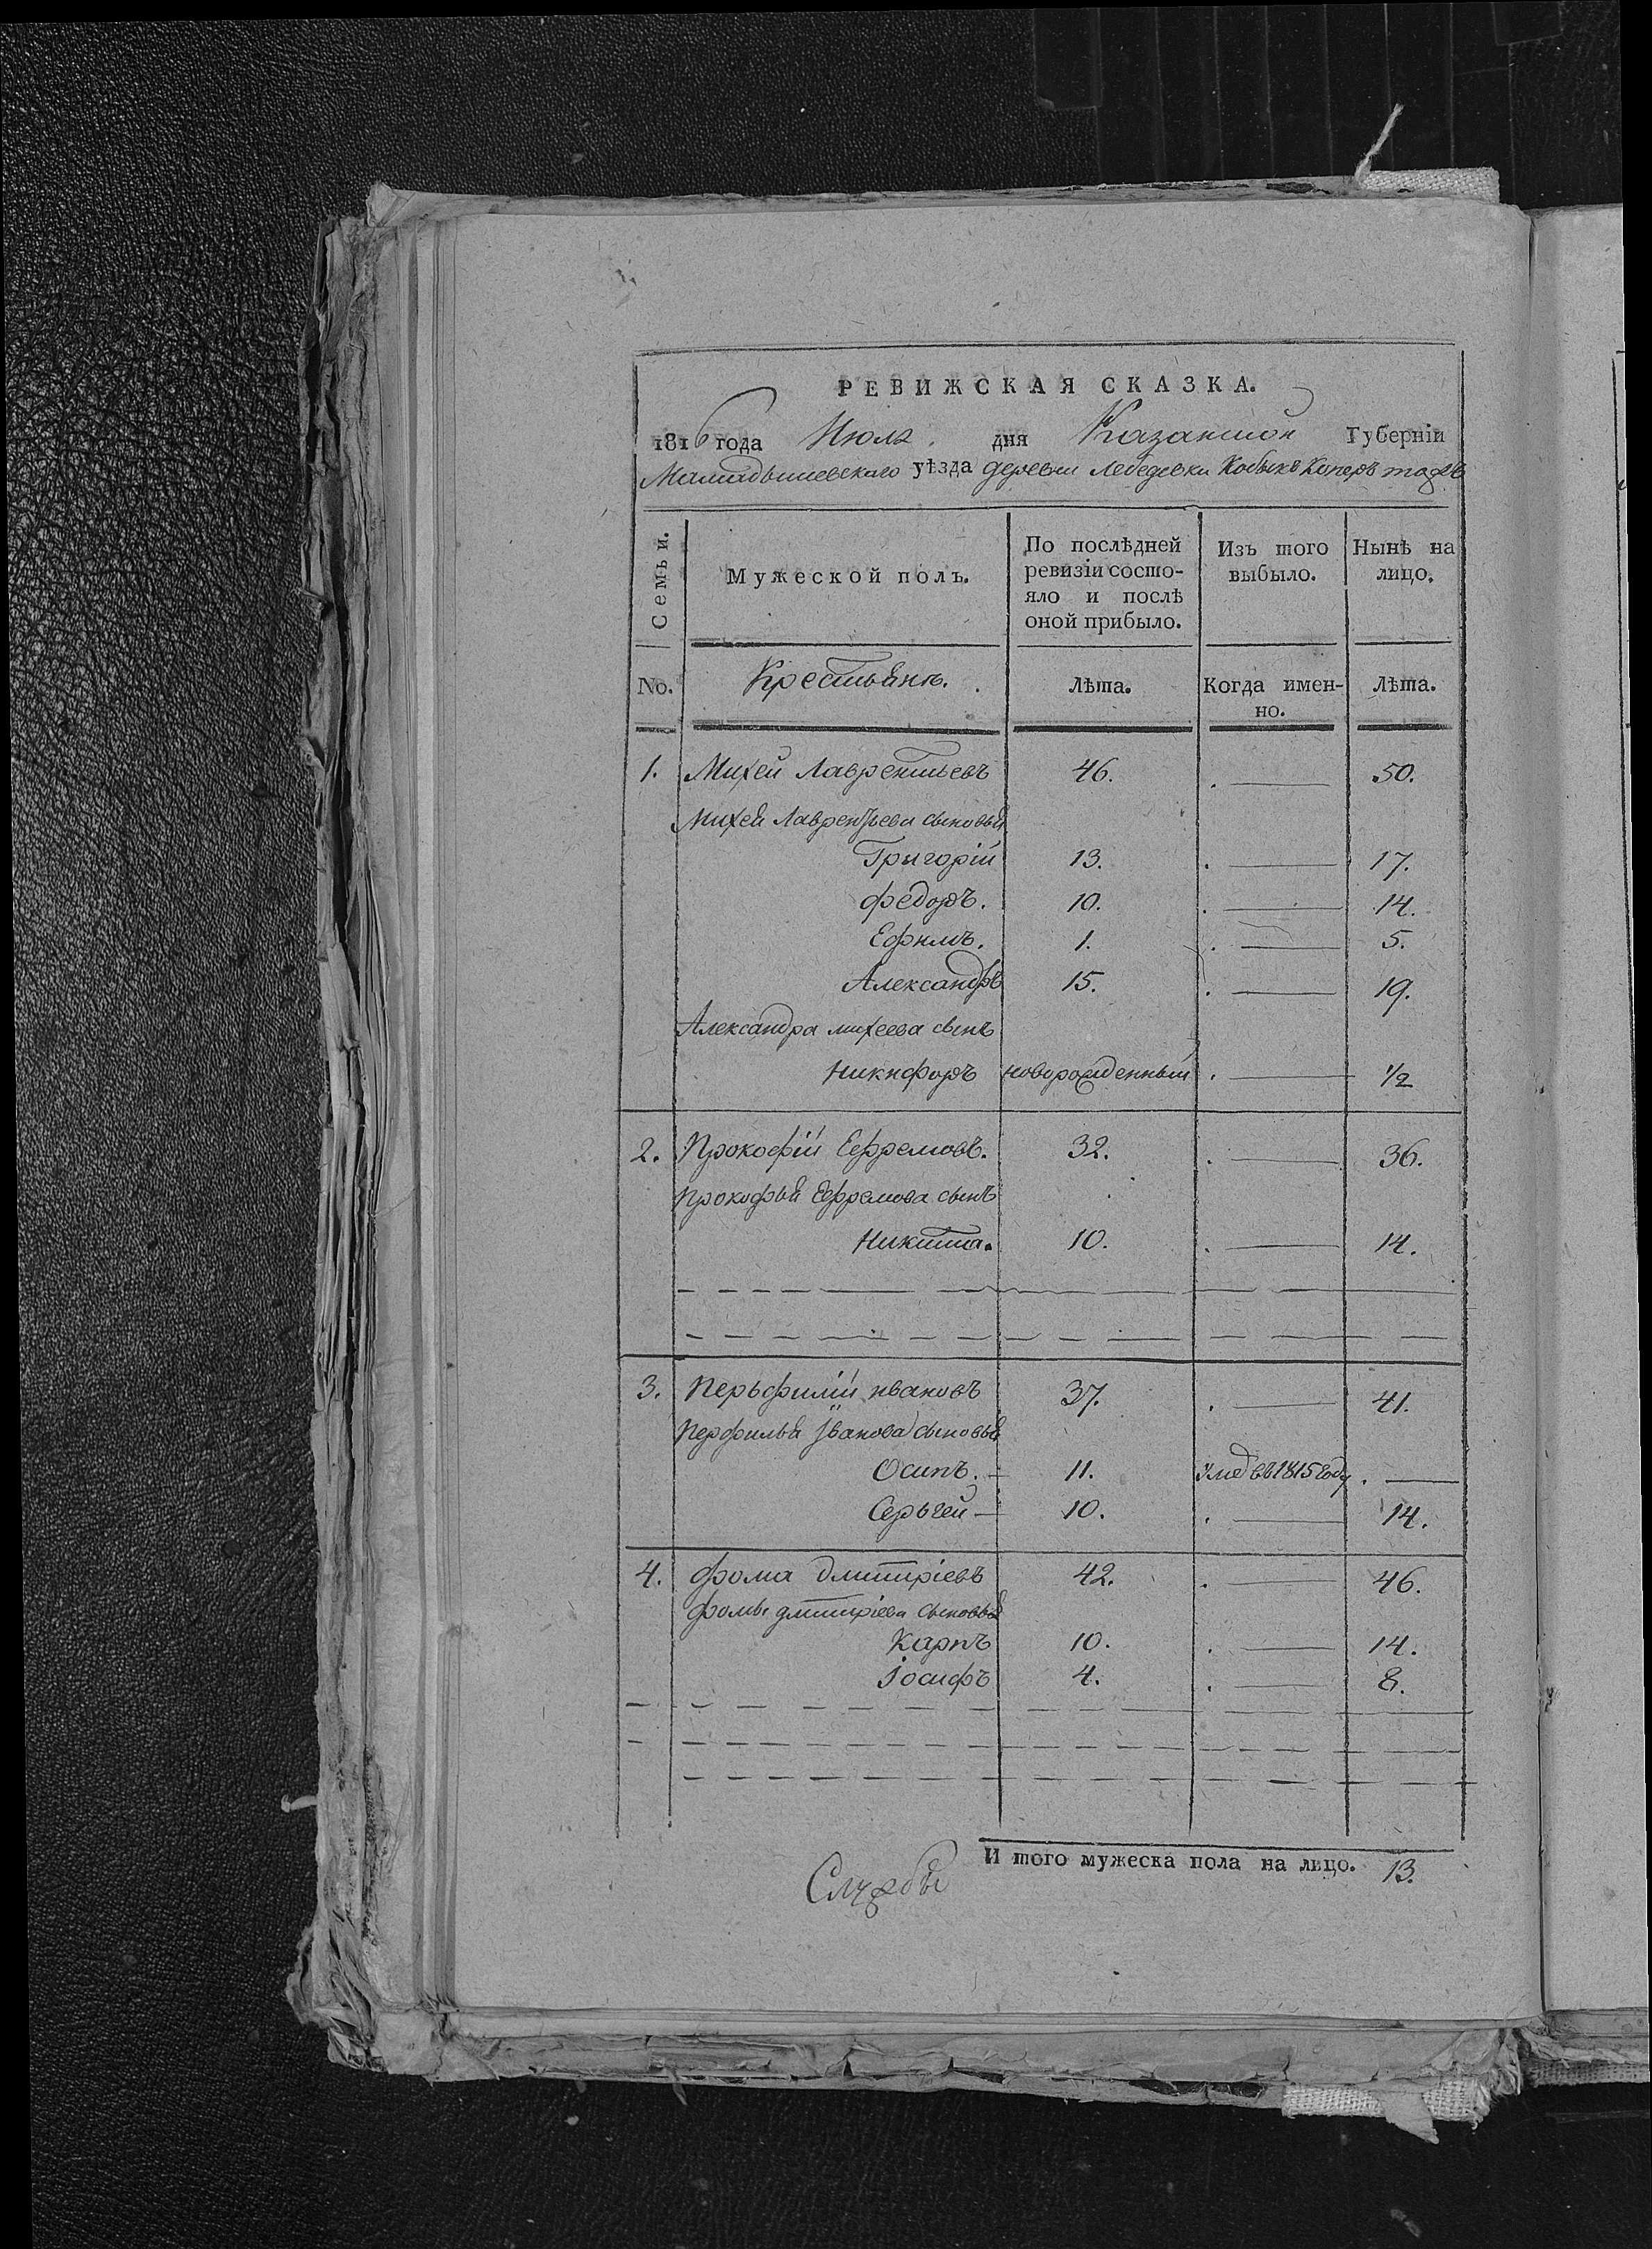 РЕВИЖСКАЯ СКАЗКА.
1816 года Июля дня Казанской Губерніи
Мамадышевскаго уѣзда деревни Лебедевки Кобыкъ Коперъ тожъ
Семьи. Мужеской полъ. По послѣдней ревизіи состояло и послѣ оной прибыло. Изъ того выбыло. Нынѣ на лицо.
No. Крестьяне. Лѣта. Когда именно. Лѣта.
1. Михей Лаврентьевъ 46. . — 50.
Михея Лаврентьева сыновья
Григорій 13. . — 17.
Федоръ. 10. . — 14.
Ефимъ. 1. . — 5.
Александръ 15. . — 19.
Александра михеева сынъ
Никифоръ новорожденный . — 1/2
2. Прокофій Ефремовъ. 32. . — 36.
Прокофья Ефремова сынъ
Никита. 10. . — 14.
3. Перьфилій ивановъ 37. . — 41.
Перфилья Іванова сыновья
Осипъ. — 11. Умеръ въ 1815 году . —
Серьгей — 10. . — 14.
4. фома дмитріевъ 42. . — 46.
фомы дмитріева сыновья
Карпъ 10. . — 14.
Іосифъ 4. . — 8.
И того мужеска пола на лицо. 13.
Службы